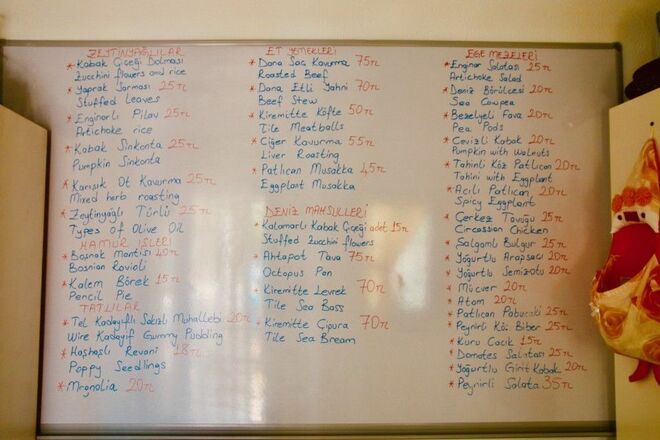 ZEYTİNYAĞLILAR
* Kabak Çiçeği Dolması
Zucchini flowers and rice
* Yaprak Sarması 25TL
Stuffed Leaves
* Enginarlı Pilav 25TL
Artichoke rice
* Kabak Sinkonta 25TL
Pumpkin Sinkonta
* Karışık Ot Kavurma 25TL
Mixed herb roasting
* Zeytinyağlı Türlü 25TL
Types of Olive Oil
HAMUR İŞLERİ
* Boşnak Mantısı 40TL
Bosnian Ravioli
* Kalem Börek 15TL
Pencil Pie
TATLILAR
* Tel Kadayıflı Sakızlı Muhallebi 20TL
Wire Kadayıf Gummy Pudding
* Haşhaşlı Revani 18TL
Poppy Seedlings
* Magnolia 20TL
ET YEMEKLERİ
* Dana Saç Kavurma 75TL
Roasted Beef
* Dana Etli Yahni 70TL
Beef Stew
* Kiremitte Köfte 50TL
Tile Meatballs
* Ciğer Kavurma 55TL
Liver Roasting
* Patlıcan Musakka 45TL
Eggplant Musakka
DENİZ MAHSULLERİ
* Kalamarlı Kabak Çiçeği adet 15TL
Stuffed zucchi flowers
* Ahtapot Tava 75TL
Octopus Pan
* Kiremitte Levrek 70TL
Tile Sea Bass
* Kiremitte Çipura 70TL
Tile Sea Bream
EGE MEZELERİ
* Enginar Salatası 25TL
Artichoke Salad
* Deniz Börülcesi 20TL
Sea Cowpea
* Bezelyeli Fava 20TL
Pea Pods
* Cevizli Kabak 20TL
Pumpkin with Walnuts
* Tahinli Köz Patlıcan 20TL
Tahini with Eggplant
* Acılı Patlıcan 20TL
Spicy Eggplant
* Çerkez Tavuğu 25TL
Circassion Chicken
* Şalgamlı Bulgur 25TL
* Yoğurtlu Arapsaçı 20TL
* Yoğurtlu Semizotu 20TL
* Mücver 20TL
* Atom 20TL
* Patlıcan Pabucaki 25TL
* Peynirli Köz Biber 25TL
* Kuru Cacık 15TL
* Domates Salatası 25TL
* Yoğurtlu Girit Kabak 20TL
* Peynirli Salata 35TL